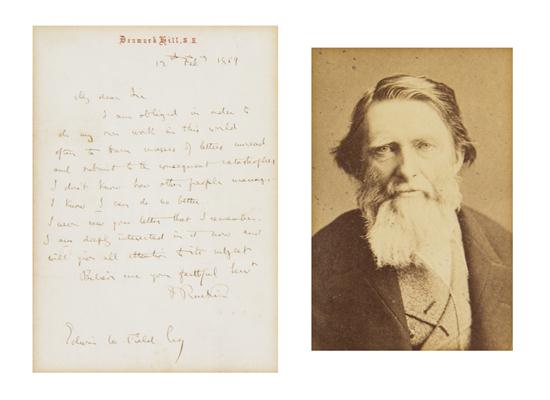 Denmark Hill, S.E.
12th Feby 1869
My dear Sir
I am obliged in order to
do my own work in this world
often to burn masses of letters unread
and submit to the consequent catastrophes
I don't know how other people manage.
I know I can do no better.
I never saw your letter that I remember.
I am deeply interested in it now and
will give all attention to its subject
Believe me your faithful servt
J Ruskin
Edwin W Field Esq